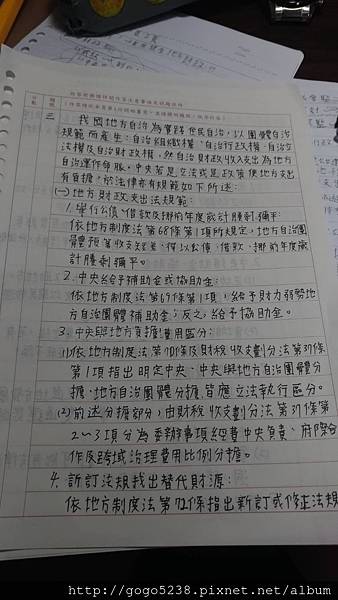 三
我國地方自治為實踐住民自治,以團體自治
規範而產生:自治組織權、自治行政權、自治立
法權及自治財政權,然自治財政收支出為地方
自治運作母脈,中央若是立法或是政策使地方支出
有負擔,於法律亦有規範如下所述:
(一)地方財政支出法規範:
1.舉行公債、借款及挪前年度歲計賸剩彌平:
依地方制度法第68條第1項所規定,地方自治團
體預算收支短差,得以公債、借款、挪前年度歲
計賸剩彌平。
2.中央給予補助金或協助金:
依地方制度法第69條第1項,給予財力弱勢地
方自治團體補助金;反之,給予協助金。
3.中央與地方負擔費用區分:
(1)依地方制度法第70條及財稅收支劃分法第37條
第1項指出明定中央、中央與地方自治團體分
擔、地方自治團體分擔,皆應立法執行區分。
(2)前述分擔部分,由財稅收支劃分法第37條第
2~3項分為委辦事項經費中央負責、府際合
作及跨域治理費用比例分擔。
4.新訂法規找出替代財源:
依地方制度法第72條指出新訂或修正法規
http://gogo5238.pixnet.net/album